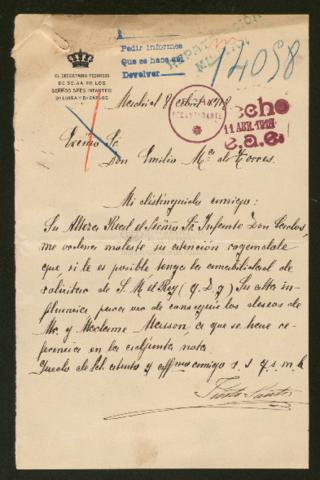 Pedir informes
Que se hace así
Devolver
14098
EL SECRETARIO TESORERO
DE SS. AA. RR. LOS
SERMOS SRES INFANTES
Dª LUISA Y Dn CARLOS
Madrid 8 Abril 1918
Hecho
11 ABR. 1918
e.a.c.
Excmo Sr.
Don Emilio Mª de Torres.
Mi distinguido amigo:
Su Alteza Real el Señor Sr. Infante Don Carlos,
me ordena moleste su atención rogandole
que si le es posible tenga la amabilidad de
solicitar de S. M. el Rey (q. D. g) Su alta in-
fluencia, para ver de conseguir los deseos de
Mr. y Madame Masson, a que se hace re-
ferencia en la adjunta nota
Quedo de Vd. atento y affmo amigo s. s. q. s. m. b